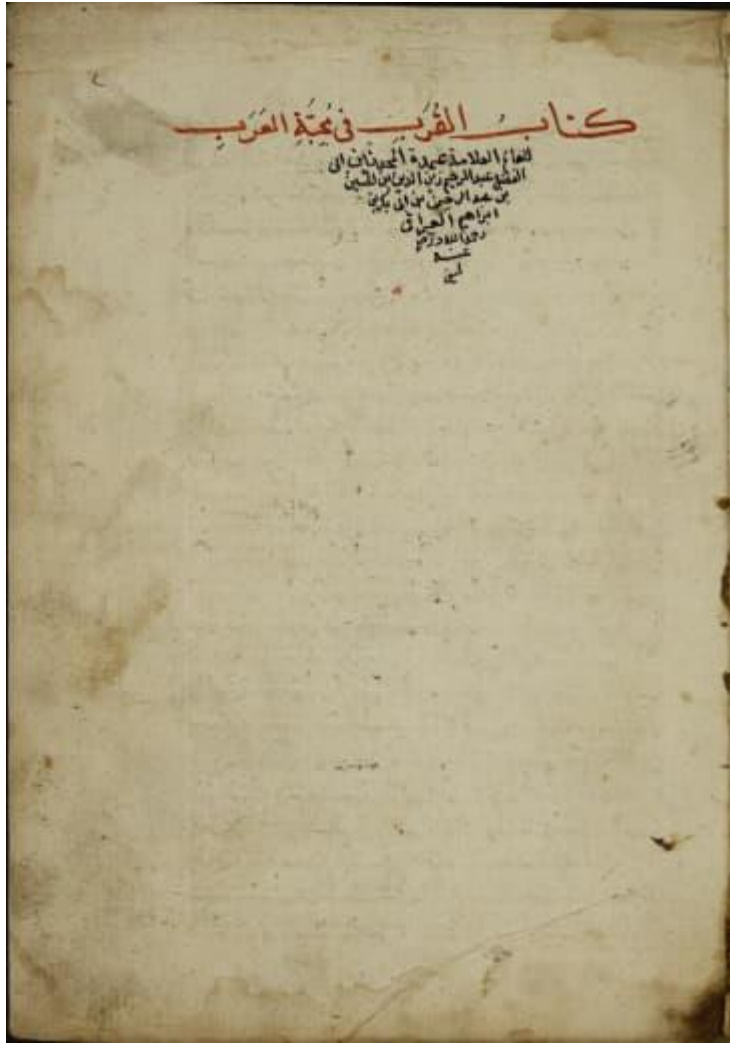 كتاب القُرَب في محبَّةِ العَرَبِ
للعالم العلامة عمدة المحدثين ابى
الفضل عبد الرحيم زين الدين ابن الحسين
بن عبد الرحمن بن ابى بكر بن
ابراهيم العراقى
رحمه الله ورضى
عنه
امين